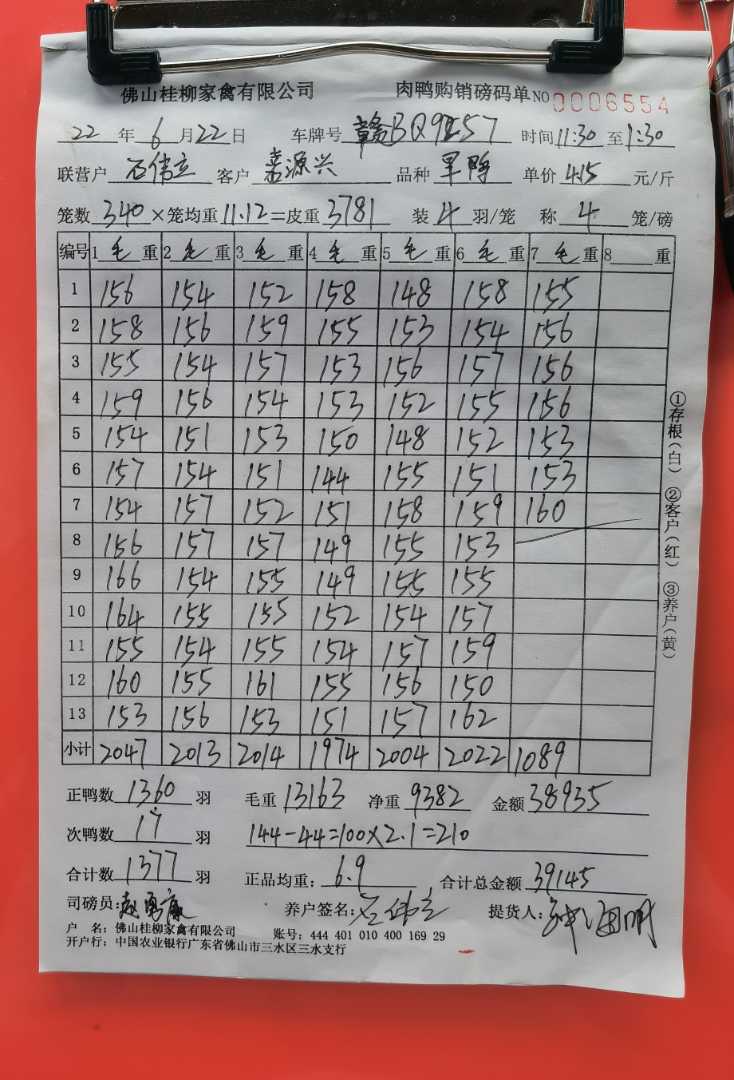 佛山桂柳家禽有限公司 肉鸭购销磅码单 NO 0006554
22 年 6 月 22 日 车牌号 赣BQ9257 时间 11:30 至 1:30
联营户 石伟立 客户 嘉源兴 品种 旱鸭 单价 4.15 元/斤
笼数 340 ×笼均重 11.12 =皮重 3781 装 4 羽/笼 称 4 笼/磅
编号 1 毛 重 2 毛 重 3 毛 重 4 毛 重 5 毛 重 6 毛 重 7 毛 重 8 重
1 156 154 152 158 148 158 155
2 158 156 159 155 153 154 156
3 155 154 157 153 156 157 156
4 159 156 154 153 152 155 156
5 154 151 153 150 148 152 153
6 157 154 151 144 155 151 153
7 154 157 152 151 158 159 160
8 156 157 157 149 155 153
9 166 154 155 149 155 155
10 164 155 155 152 154 157
11 155 154 155 154 157 159
12 160 155 161 155 156 150
13 153 156 153 151 157 162
小计 2047 2013 2014 1974 2004 2022 1089
正鸭数 1360 羽 毛重 13163 净重 9382 金额 38935
次鸭数 17 羽 144-44=100×2.1=210
合计数 1377 羽 正品均重: 6.9 合计总金额 39145
司磅员: 赵勇廉 养户签名: 石伟立 提货人:
户 名: 佛山桂柳家禽有限公司 账号: 444 401 010 400 169 29
开户行: 中国农业银行广东省佛山市三水区三水支行
①存根(白) ②客户(红) ③养户(黄)